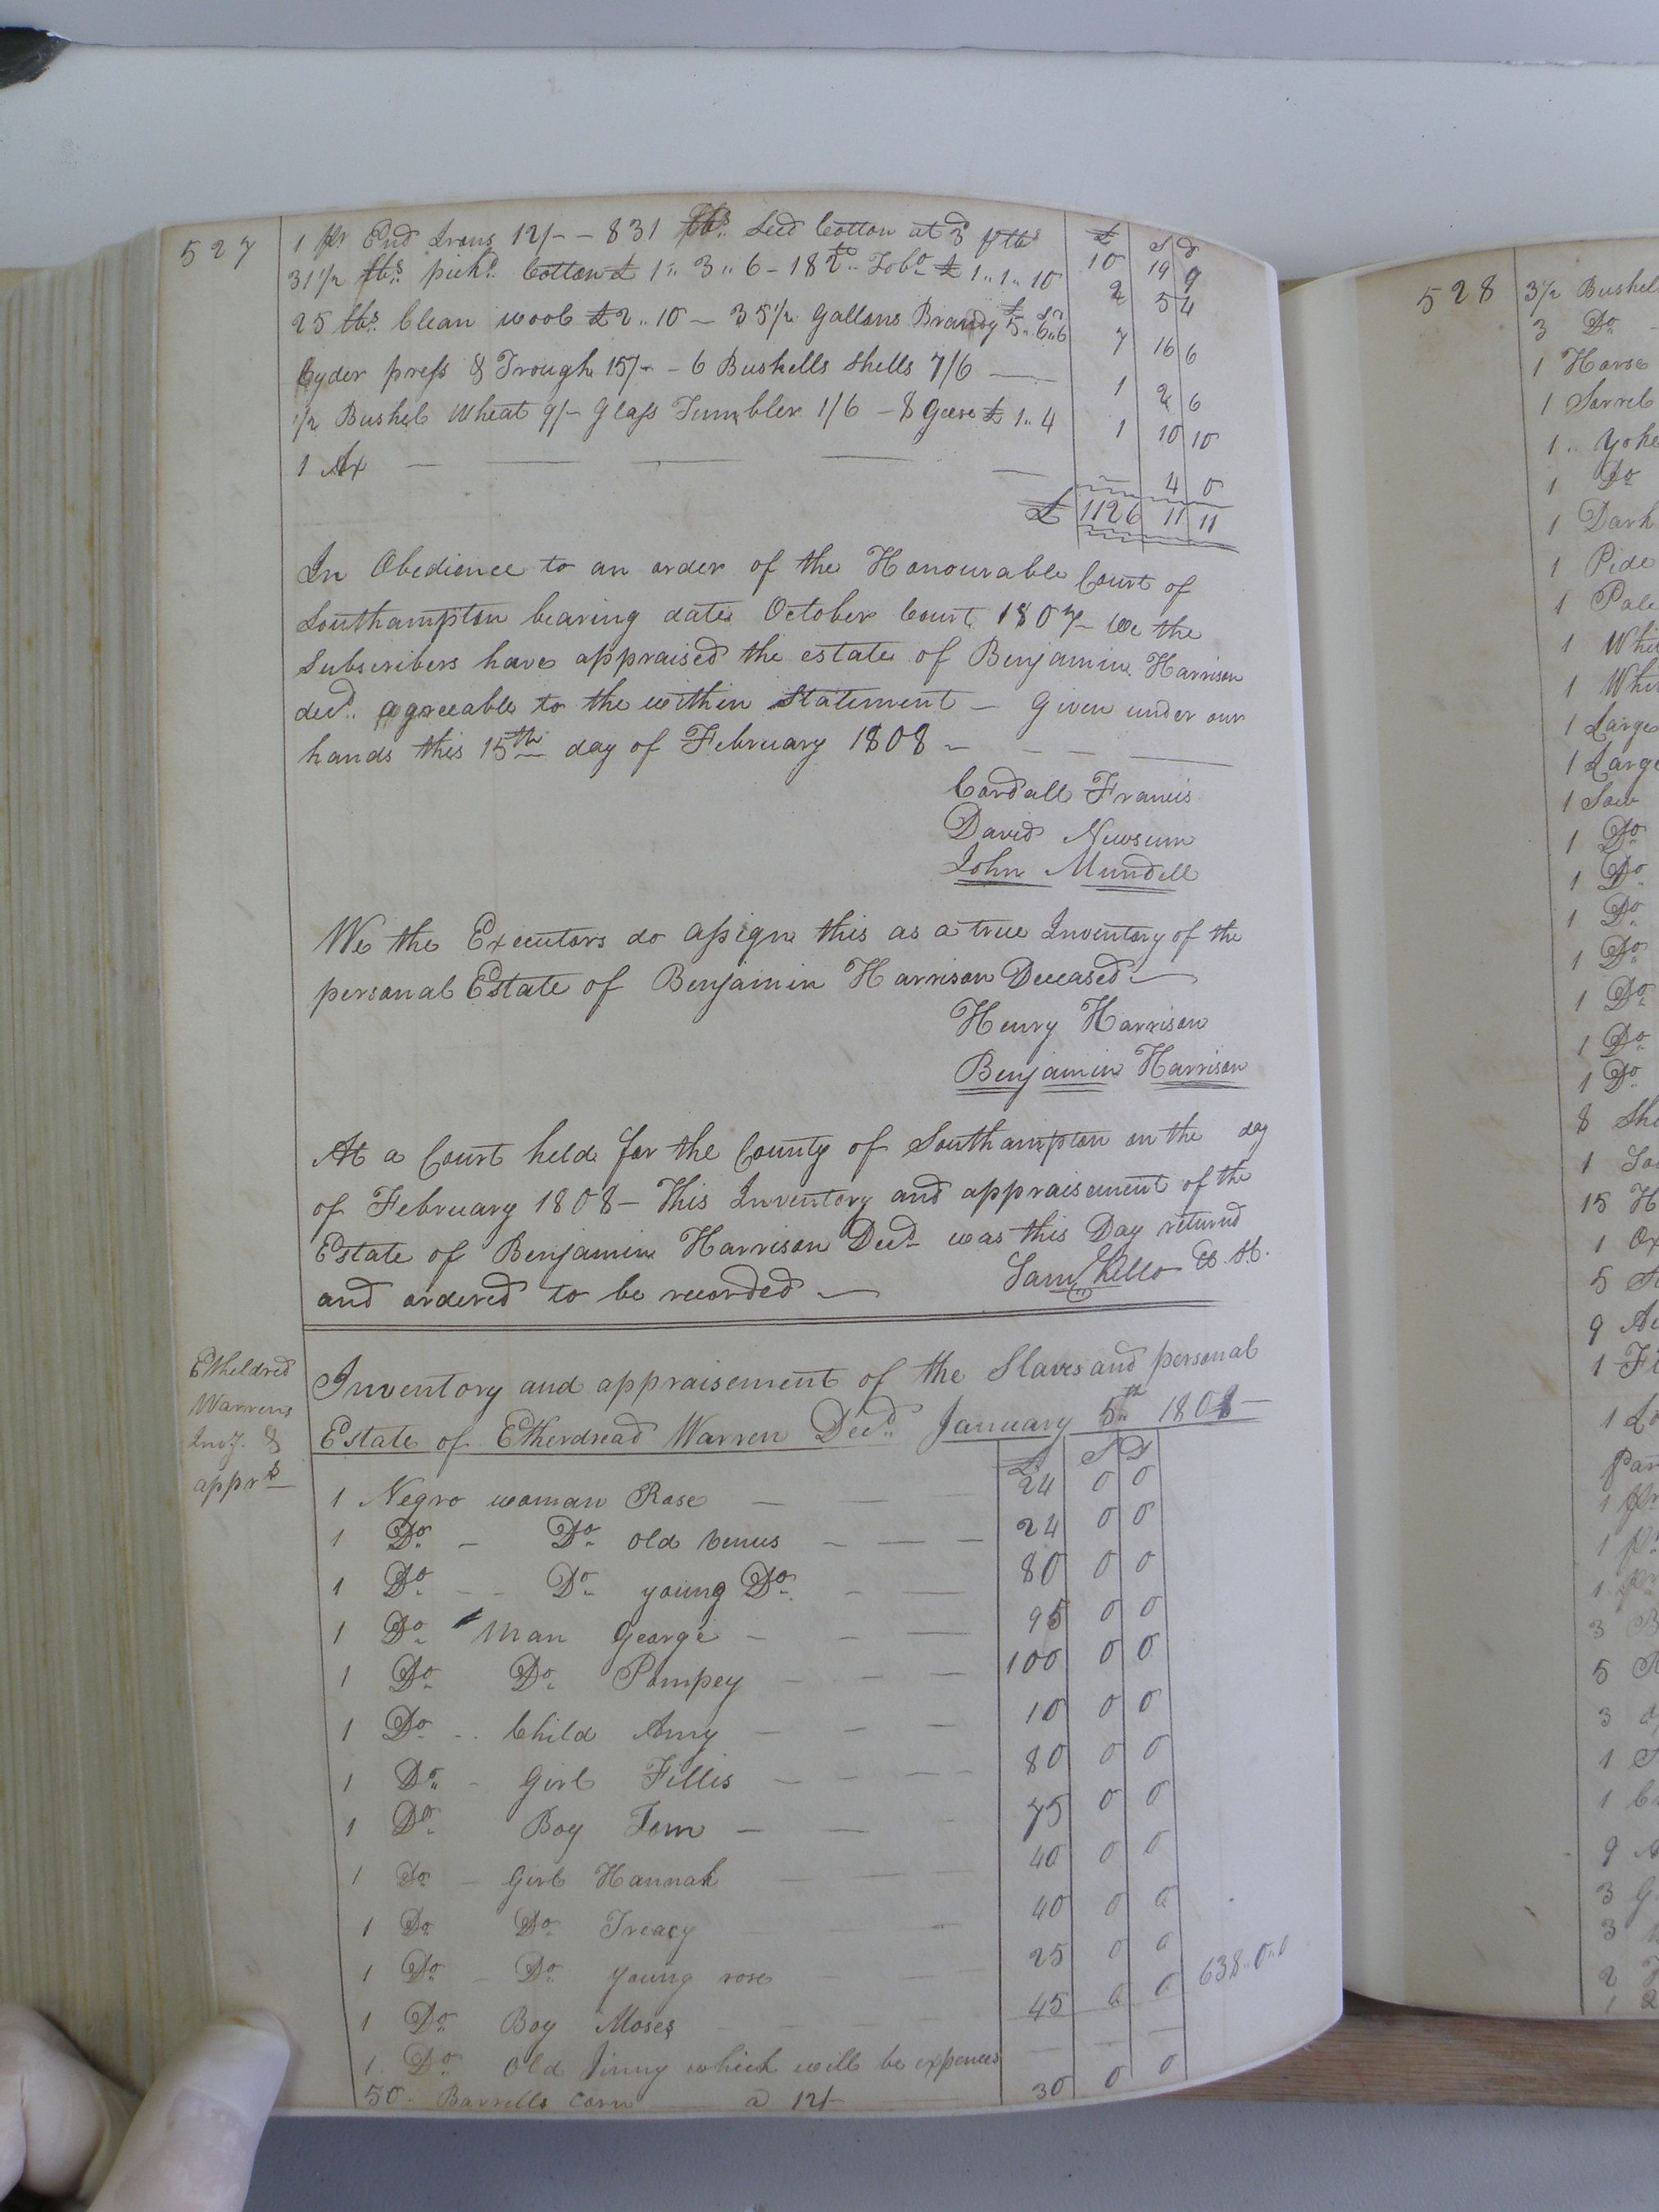 527
1 pr End Irons 12/- - 831 lbs. Seed Cotton at 3d p lb £ S d 10 19 9
31 1/2 lbs. pickd. Cotton £ 1.. 3.. 6 - 182 lb. Tobo. £ 1.. 1.. 10 2 5 4
25 lbs. Clean wool £2.. 10 - 35 1/2 Gallons Brandy £5.. 6.. 6 7 16 6
Cyder press & Trough 15/- - 6 Bushells Shells 7/6 — 1 2 6
1/2 Bushel Wheat 9/- Glass Tumbler 1/6 - 8 Geese £ 1.. 4 1 10 10
1 Ax — — — — — 4 0
£ 1126 11 11
In Obedience to an order of the Honourable Court of
Southampton bearing date October Court 1807 - We the
Subscribers have appraised the estate of Benjamin Harrison
decd. agreeable to the within Statement - Given under our
hands this 15th day of February 1808 -
Cordall Francis
David Newsum
John Mundell
We the Executors do assign this as a true Inventory of the
personal Estate of Benjamin Harrison Deceased -
Henry Harrison
Benjamin Harrison
At a Court held for the County of Southampton on the day
of February 1808 - This Inventory and appraisement of the
Estate of Benjamin Harrison Decd. was this Day returnd
and ordered to be recorded -
Saml Kello
Etheldred
Warrens
Invy. &
apprt
Inventory and appraisement of the Slaves and personal
Estate of Etherdread Warren Decd. January 5th 1808 -
£ S D
1 Negro woman Rose — — — 24 0 0
1 Do. - Do. old Venus - — — 24 0 0
1 Do. - - Do. young Do. - — 80 0 0
1 Do. Man George - - — 95 0 0
1 Do. Do. Pompey - - — 100 0 0
1 Do. - Child Amy — — — 10 0 0
1 Do. - Girl Fillis — — — 80 0 0
1 Do. Boy Tom — — - 75 0 0
1 Do. - Girl Hannah — — 40 0 0
1 Do. Do. Treacy — — 40 0 0
1 Do. - Do. young rose — — 25 0 0
1 Do. Boy Moses - — — 45 0 0 638..0..0
1. Do. Old Jinny which will be expences — — —
50. Barrells Corn a 12/- 30 0 0
528
3 1/2 Bushel
3 Do. -
1 Horse
1 Sorrel
1.. Yoke
1 Do
1 Dark
1 Pide
1 Pale
1 Whi
1 Whi
1 Large
1 Large
1 Sow
1 Do.
1 Do.
1 Do.
1 Do.
1 Do.
1 Do.
1 Do.
8 Sh
1
15 H
1 Ox
5
9
1 Fi
1
1
1
1
3 B
5
3
1
1
9
3 G
3
2
1